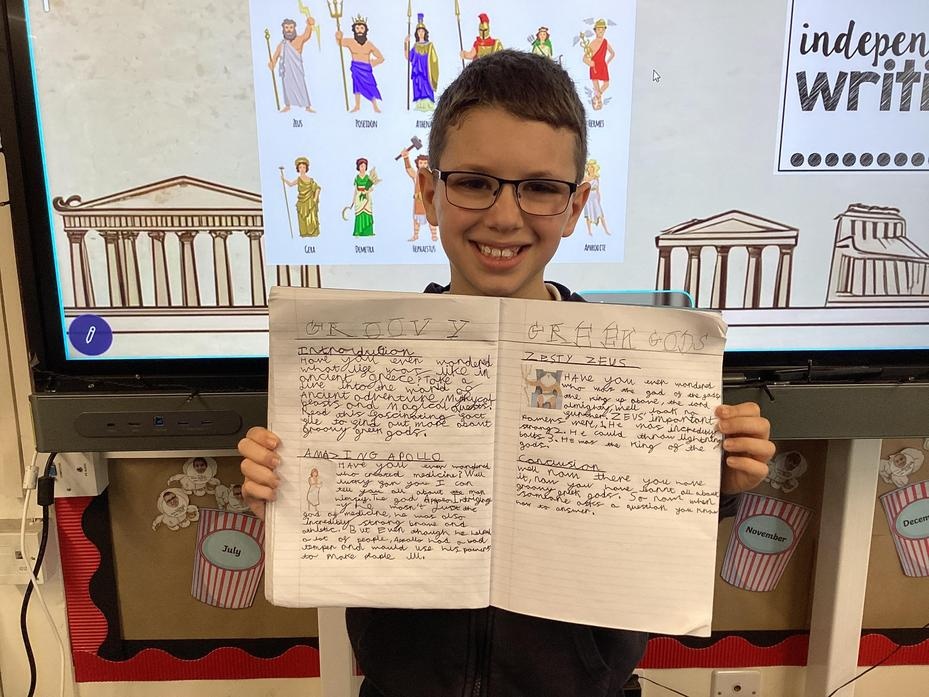 ZEUS
POSEIDON
ATHEN
HERMES
GERA
DEMETRA
HEPHAESTUS
APHRODITE
indepen
writi
GROOVY
GREEK GODS
Introdution
Have you ever wondered
what life was like in
ancient greece? Take a
dive into the world of
Ancient adventure, Mythical
beasts and Magical quests.
Read this fascinating fact
file to find out more about
groovy greek gods.
AMAZING APOLLO
Have you ever wondered
who created medicine? Well
worry you I can
tell you all about the man
he god Apollo
he wasn't just the
god of medicine, he was also
incredibly strong brave and
athletic. But Even though he helped
a lot of people, Apollo had a bad
temper and would use his powers
to make people ill.
ZESTY ZEUS
HAVE you ever wondered
who was the god of the gods
the king up above, the lord
almighty, well look no
further. ZEUS important
Powers were, 1. He was incredibly
strong 2. He could throw lightning
bolts 3. He was the King of the
gods.
Conclusion
Well from there you have
it, now you have learnt all about
groovy greek gods. So now when
someone asks a question you know
how to answer.
July
November
Decem